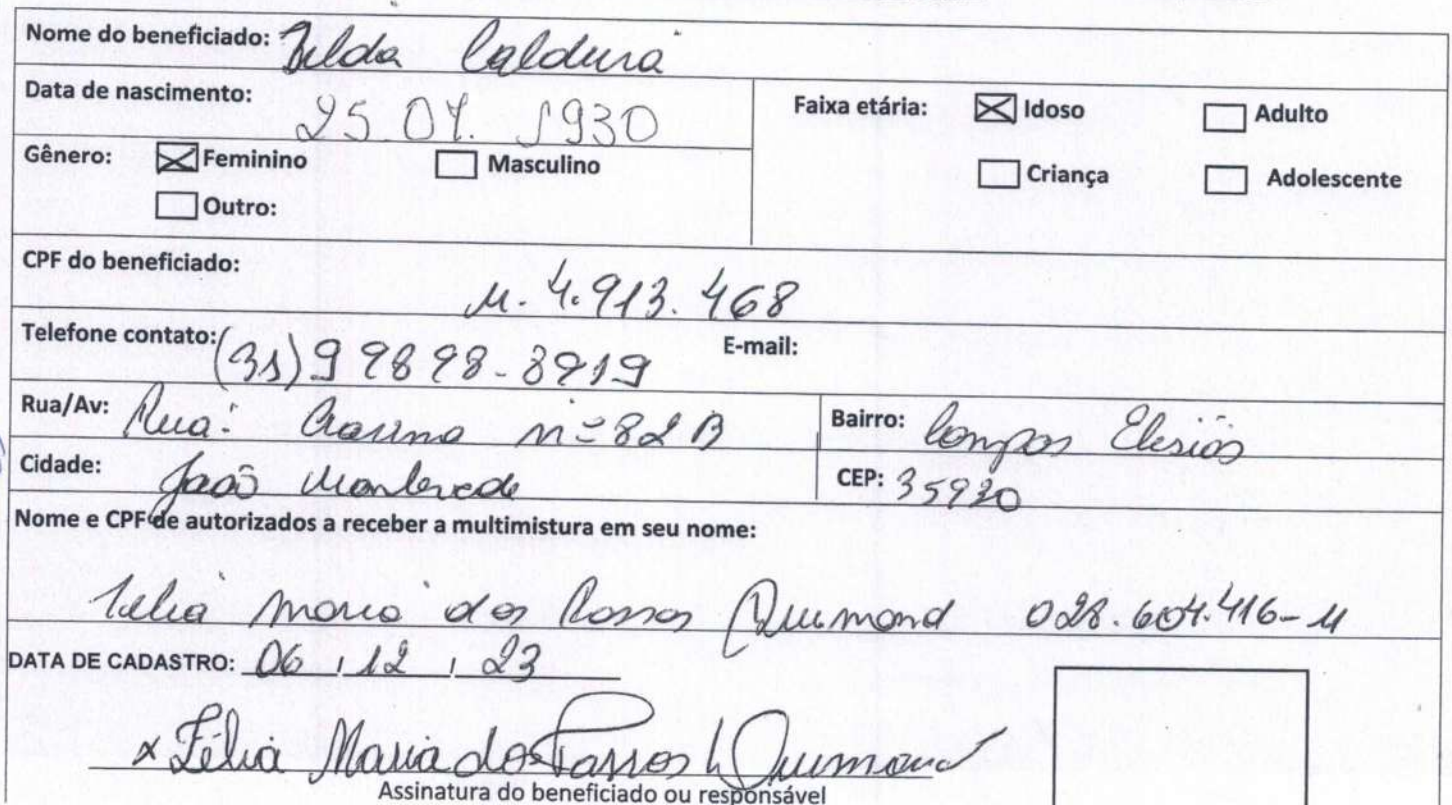 Nome do beneficiado: Zilda Caldeira
Data de nascimento: 25 07. 1930
Faixa etária: ☒ Idoso ☐ Adulto
Gênero: ☒ Feminino ☐ Masculino
☐ Criança ☐ Adolescente
☐ Outro:
CPF do beneficiado: M. 4.913.468
Telefone contato: (31) 9 9898-8919 E-mail:
Rua/Av: Rua: nº 82 B Bairro: Campos Elesios
Cidade: João Monlevade CEP: 35930
Nome e CPF de autorizados a receber a multimistura em seu nome:
Célia Maria dos Passos Drumond 028.604.416-11
DATA DE CADASTRO: 06 / 12 / 23
x Zélia Maria dos Passos L Drumond
Assinatura do beneficiado ou responsável